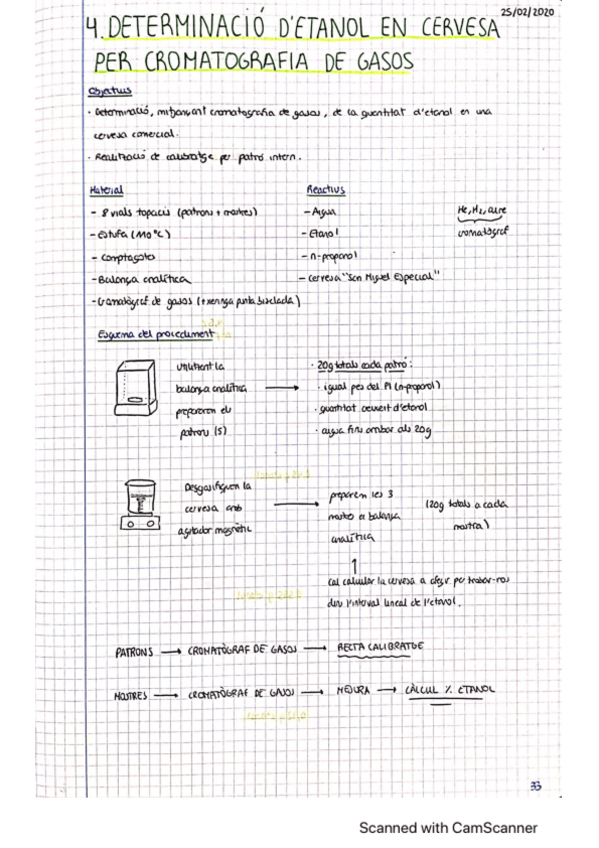 25/02/2020
4. DETERMINACIÓ D'ETANOL EN CERVESA
PER CROMATOGRAFIA DE GASOS
Objectius
· Determinació, mitjançant cromatografia de gasos, de la quantitat d'etanol en una
cervesa comercial.
· Realització de calibratge per patró intern.
Material
- 8 vials topacis (patrons + mostres)
- Estufa (110ºC)
- Comptagotes
- Balança analítica
- Cromatògraf de gasos (+ xeringa punta biselada)
Reactius
- Aigua
- Etanol
- n-propanol
- Cervesa "San Miguel Especial"
He, H₂, aire
cromatògraf
Esquema del procediment
Utilitzant la
balança analítica
preparem els
patrons (5)
· 20g totals cada patró:
· igual pes del PI (n-propanol)
· quantitat creixent d'etanol
· aigua fins arribar als 20g
Desgasifiquem la
cervesa amb
agitador magnètic
preparem les 3
mostres a balança
analítica
(20g totals a cada
mostra)
cal calcular la cervesa a afegir per trobar-nos
dins l'interval lineal de l'etanol.
PATRONS → CROMATÒGRAF DE GASOS → RECTA CALIBRATGE
MOSTRES → CROMATÒGRAF DE GASOS → MESURA → CÀLCUL % ETANOL
33
Scanned with CamScanner